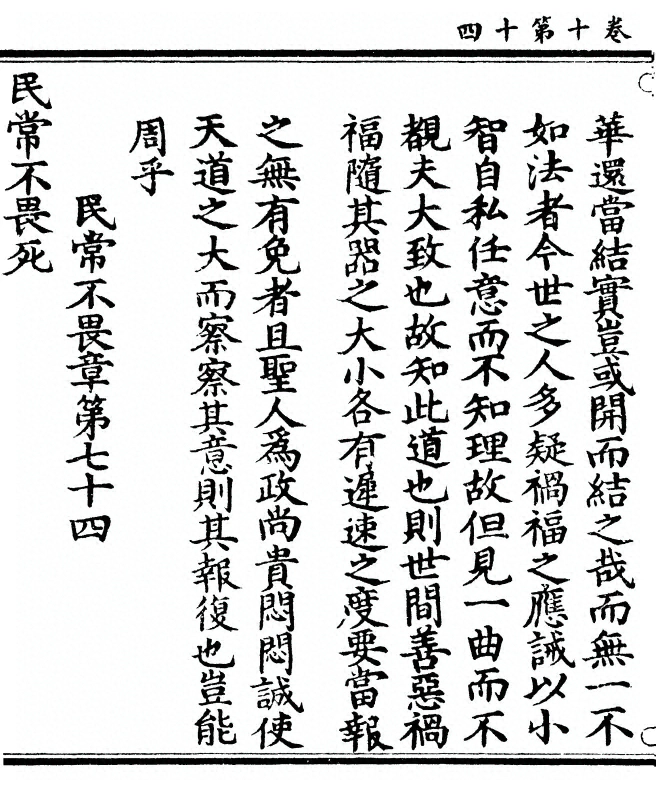 卷十第十四
華還當結實豈或開而結之哉而無一不
如法者今世之人多疑禍福之應誠以小
智自私任意而不知理故但見一曲而不
覩夫大致也故知此道也則世間善惡禍
福隨其器之大小各有遲速之度要當報
之無有免者且聖人爲政尚貴悶悶誠使
天道之大而察察其意則其報復也豈能
周乎
民常不畏章第七十四
民常不畏死